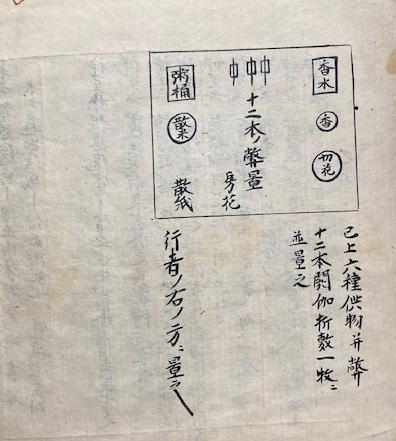 香水
香
切花
十二本ノ幣置
房花
粥桶
散米
散紙
已上六種供物并幣
十二本閼伽折敷一枚ニ
並置之
行者ノ右ノ方ニ置之